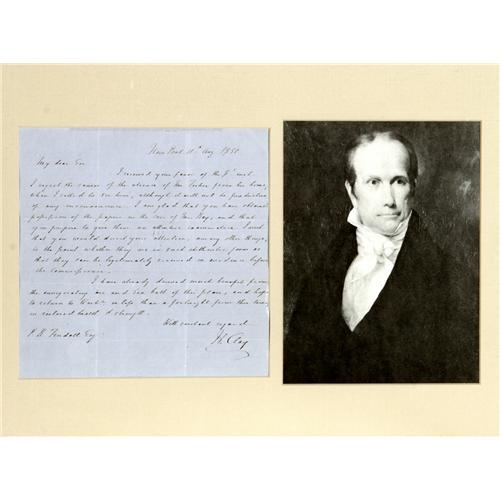 New Port 11th Aug 1850
My dear Sir
I received your favor of the 7th inst.
I regret the cause of the absence of Mr. from his home,
when I called to see him, although it will not be productive
of any inconvenience. I am glad that you have obtained
possession of the papers in the case of Mr. Hays, and that
you propose to give them an attentive examination. I wish
that you would direct your attention, among other things,
to the point whether they are in such authentic form as
that they can be legitimately received in evidence before
the Commissioners.
I have already derived much benefit from
the invigorating air and Sea bath of this place, and hope
to return to Washn. in less than a fortnight from this time,
in restored health & strength.
With constant regard
P. R. Fendall Esq
H. Clay